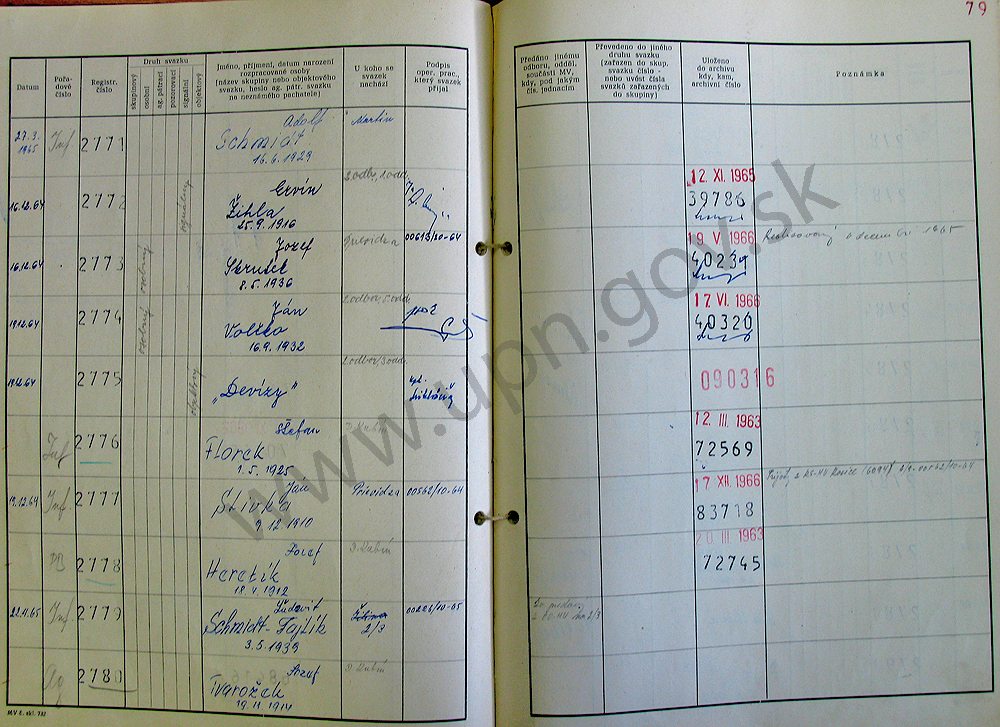 79
Datum
Pořa-
dové
číslo
Registr.
číslo
Druh svazku
skupinový
osobní
ag. pátrací
pozorovací
signální
objektový
Jméno, příjmení, datum narození
rozpracované osoby
(název skupiny nebo objektového
svazku, heslo ag. pátr. svazku
na neznámého pachatele)
U koho se
svazek
nachází
Podpis
oper. prac.,
který svazek
přijal
Předáno jinému
odboru, odděl.,
součásti MV,
kdy, pod jakým
čís. jednacím
Převedeno do jiného
druhu svazku
(zařazen do skup.
svazku číslo -
nebo uvést čísla
svazků zařazených
do skupiny)
Uloženo
do archivu
kdy, kam,
archivní číslo
Poznámka
27.3.
1965
Inf
2771
Adolf
Schmidt
16.6.1929
Martin
16.12.64
2772
signálny
Ervín
Žihla
25.9.1916
2.odbr, 1.odd.
12. XI. 1965
39786
16.12.64
2773
osobný
Jozef
8.5.1936
Prievidza
00613/20-64
19. V. 1966
40239
Realizovaný v decembri 1965
19.12.64
2774
osobný
Ján
Voštko
16.9.1932
2.odbor, 5.odd.
17. VI. 1966
40320
19.12.64
2775
objektový
„Devízy"
2.odbor/3odd.
090316
Inf
2776
Štefan
Florek
1.5.1925
D.Kubín
12. III. 1963
72569
19.12.64
Inf
2777
Ján
Slivka
9.12.1910
Prievidza
00562/10-64
17. XII. 1966
83718
PB
2778
Jozef
Heretík
18.V.1912
D.Kubín
20. III. 1963
72745
22.4.65
Inf
2779
Ľudovit
Schmidt-Fajlík
3.5.1939
Žilina
2/3
00226/10-65
Ag
2780
Jozef
Tvarožek
19.11.1914
D.Kubín
MV č. skl. 732
www.upn.gov.sk